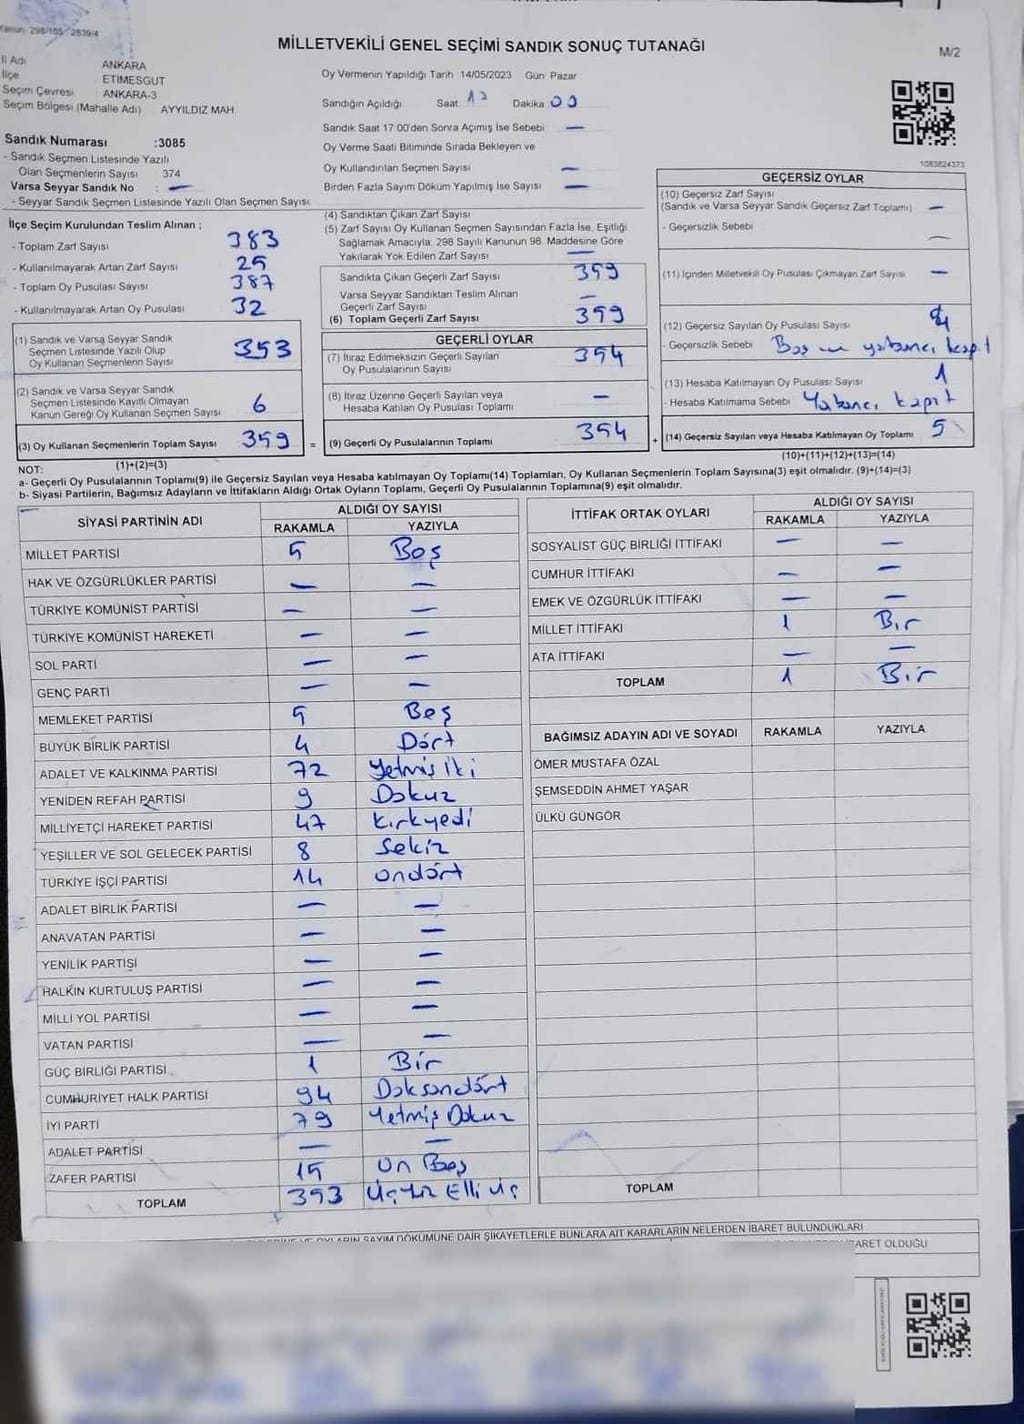 Kanun: 298/105 2839/4
MİLLETVEKİLİ GENEL SEÇİMİ SANDIK SONUÇ TUTANAĞI
M/2
İl Adı ANKARA
İlçe ETİMESGUT
Seçim Çevresi ANKARA-3
Seçim Bölgesi (Mahalle Adı) AYYILDIZ MAH.
Oy Vermenin Yapıldığı Tarih :14/05/2023 Gün: Pazar
Sandığın Açıldığı Saat: 17 Dakika: 00
Sandık Saat 17:00'den Sonra Açımış İse Sebebi: —
Oy Verme Saati Bitiminde Sırada Bekleyen ve
Oy Kullandırılan Seçmen Sayısı —
Birden Fazla Sayım Döküm Yapılmış İse Sayısı —
1083824373
Sandık Numarası :3085
- Sandık Seçmen Listesinde Yazılı
Olan Seçmenlerin Sayısı 374
Varsa Seyyar Sandık No : —
- Seyyar Sandık Seçmen Listesinde Yazılı Olan Seçmen Sayısı
İlçe Seçim Kurulundan Teslim Alınan ;
- Toplam Zarf Sayısı 383
- Kullanılmayarak Artan Zarf Sayısı 25
- Toplam Oy Pusulası Sayısı 387
- Kullanılmayarak Artan Oy Pusulası 32
(1) Sandık ve Varsa Seyyar Sandık
Seçmen Listesinde Yazılı Olup
Oy Kullanan Seçmenlerin Sayısı 353
(2) Sandık ve Varsa Seyyar Sandık
Seçmen Listesinde Kayıtlı Olmayan
Kanun Gereği Oy Kullanan Seçmen Sayısı 6
(3) Oy Kullanan Seçmenlerin Toplam Sayısı 359 =
(1)+(2)=(3)
(4) Sandıktan Çıkan Zarf Sayısı
(5) Zarf Sayısı Oy Kullanan Seçmen Sayısından Fazla İse, Eşitliği
Sağlamak Amacıyla, 298 Sayılı Kanunun 98. Maddesine Göre
Yakılarak Yok Edilen Zarf Sayısı —
Sandıkta Çıkan Geçerli Zarf Sayısı 359
Varsa Seyyar Sandıktan Teslim Alınan
Geçerli Zarf Sayısı —
(6) Toplam Geçerli Zarf Sayısı 359
GEÇERLİ OYLAR
(7) İtiraz Edilmeksizin Geçerli Sayılan
Oy Pusulalarının Sayısı 354
(8) İtiraz Üzerine Geçerli Sayılan veya
Hesaba Katılan Oy Pusulası Toplamı —
(9) Geçerli Oy Pusulalarının Toplamı 354 +
GEÇERSİZ OYLAR
(10) Geçersiz Zarf Sayısı
(Sandık ve Varsa Seyyar Sandık Geçersiz Zarf Toplamı) —
- Geçersizlik Sebebi —
(11) İçinden Milletvekili Oy Pusulası Çıkmayan Zarf Sayısı —
(12) Geçersiz Sayılan Oy Pusulası Sayısı 4
- Geçersizlik Sebebi Boş ve yabancı kağıt
(13) Hesaba Katılmayan Oy Pusulası Sayısı 1
- Hesaba Katılmama Sebebi Yabancı kağıt
(14) Geçersiz Sayılan veya Hesaba Katılmayan Oy Toplamı 5
(10)+(11)+(12)+(13)=(14)
NOT:
a- Geçerli Oy Pusulalarının Toplamı(9) ile Geçersiz Sayılan veya Hesaba katılmayan Oy Toplamı(14) Toplamları, Oy Kullanan Seçmenlerin Toplam Sayısına(3) eşit olmalıdır. (9)+(14)=(3)
b- Siyasi Partilerin, Bağımsız Adayların ve İttifakların Aldığı Ortak Oyların Toplamı, Geçerli Oy Pusulalarının Toplamına(9) eşit olmalıdır.
SİYASİ PARTİNİN ADI ALDIĞI OY SAYISI
RAKAMLA YAZIYLA
MİLLET PARTİSİ 5 Beş
HAK VE ÖZGÜRLÜKLER PARTİSİ — —
TÜRKİYE KOMÜNİST PARTİSİ — —
TÜRKİYE KOMÜNİST HAREKETİ — —
SOL PARTİ — —
GENÇ PARTİ — —
MEMLEKET PARTİSİ 5 Beş
BÜYÜK BİRLİK PARTİSİ 4 Dört
ADALET VE KALKINMA PARTİSİ 72 Yetmiş iki
YENİDEN REFAH PARTİSİ 9 Dokuz
MİLLİYETÇİ HAREKET PARTİSİ 47 Kırkyedi
YEŞİLLER VE SOL GELECEK PARTİSİ 8 Sekiz
TÜRKİYE İŞÇİ PARTİSİ 14 ondört
ADALET BİRLİK PARTİSİ — —
ANAVATAN PARTİSİ — —
YENİLİK PARTİSİ — —
HALKIN KURTULUŞ PARTİSİ — —
MİLLİ YOL PARTİSİ — —
VATAN PARTİSİ — —
GÜÇ BİRLİĞİ PARTİSİ 1 Bir
CUMHURİYET HALK PARTİSİ 94 Doksandört
İYİ PARTİ 79 Yetmiş Dokuz
ADALET PARTİSİ — —
ZAFER PARTİSİ 15 On Beş
TOPLAM 353 Üçyüz Elli üç
İTTİFAK ORTAK OYLARI ALDIĞI OY SAYISI
RAKAMLA YAZIYLA
SOSYALİST GÜÇ BİRLİĞİ İTTİFAKI — —
CUMHUR İTTİFAKI — —
EMEK VE ÖZGÜRLÜK İTTİFAKI — —
MİLLET İTTİFAKI 1 Bir
ATA İTTİFAKI — —
TOPLAM 1 Bir
BAĞIMSIZ ADAYIN ADI VE SOYADI RAKAMLA YAZIYLA
ÖMER MUSTAFA ÖZAL
ŞEMSEDDİN AHMET YAŞAR
ÜLKÜ GÜNGÖR
TOPLAM
OYLARIN SAYIM DÖKÜMÜNE DAİR ŞİKAYETLERLE BUNLARA AİT KARARLARIN NELERDEN İBARET BULUNDUKLARI
OLDUĞU